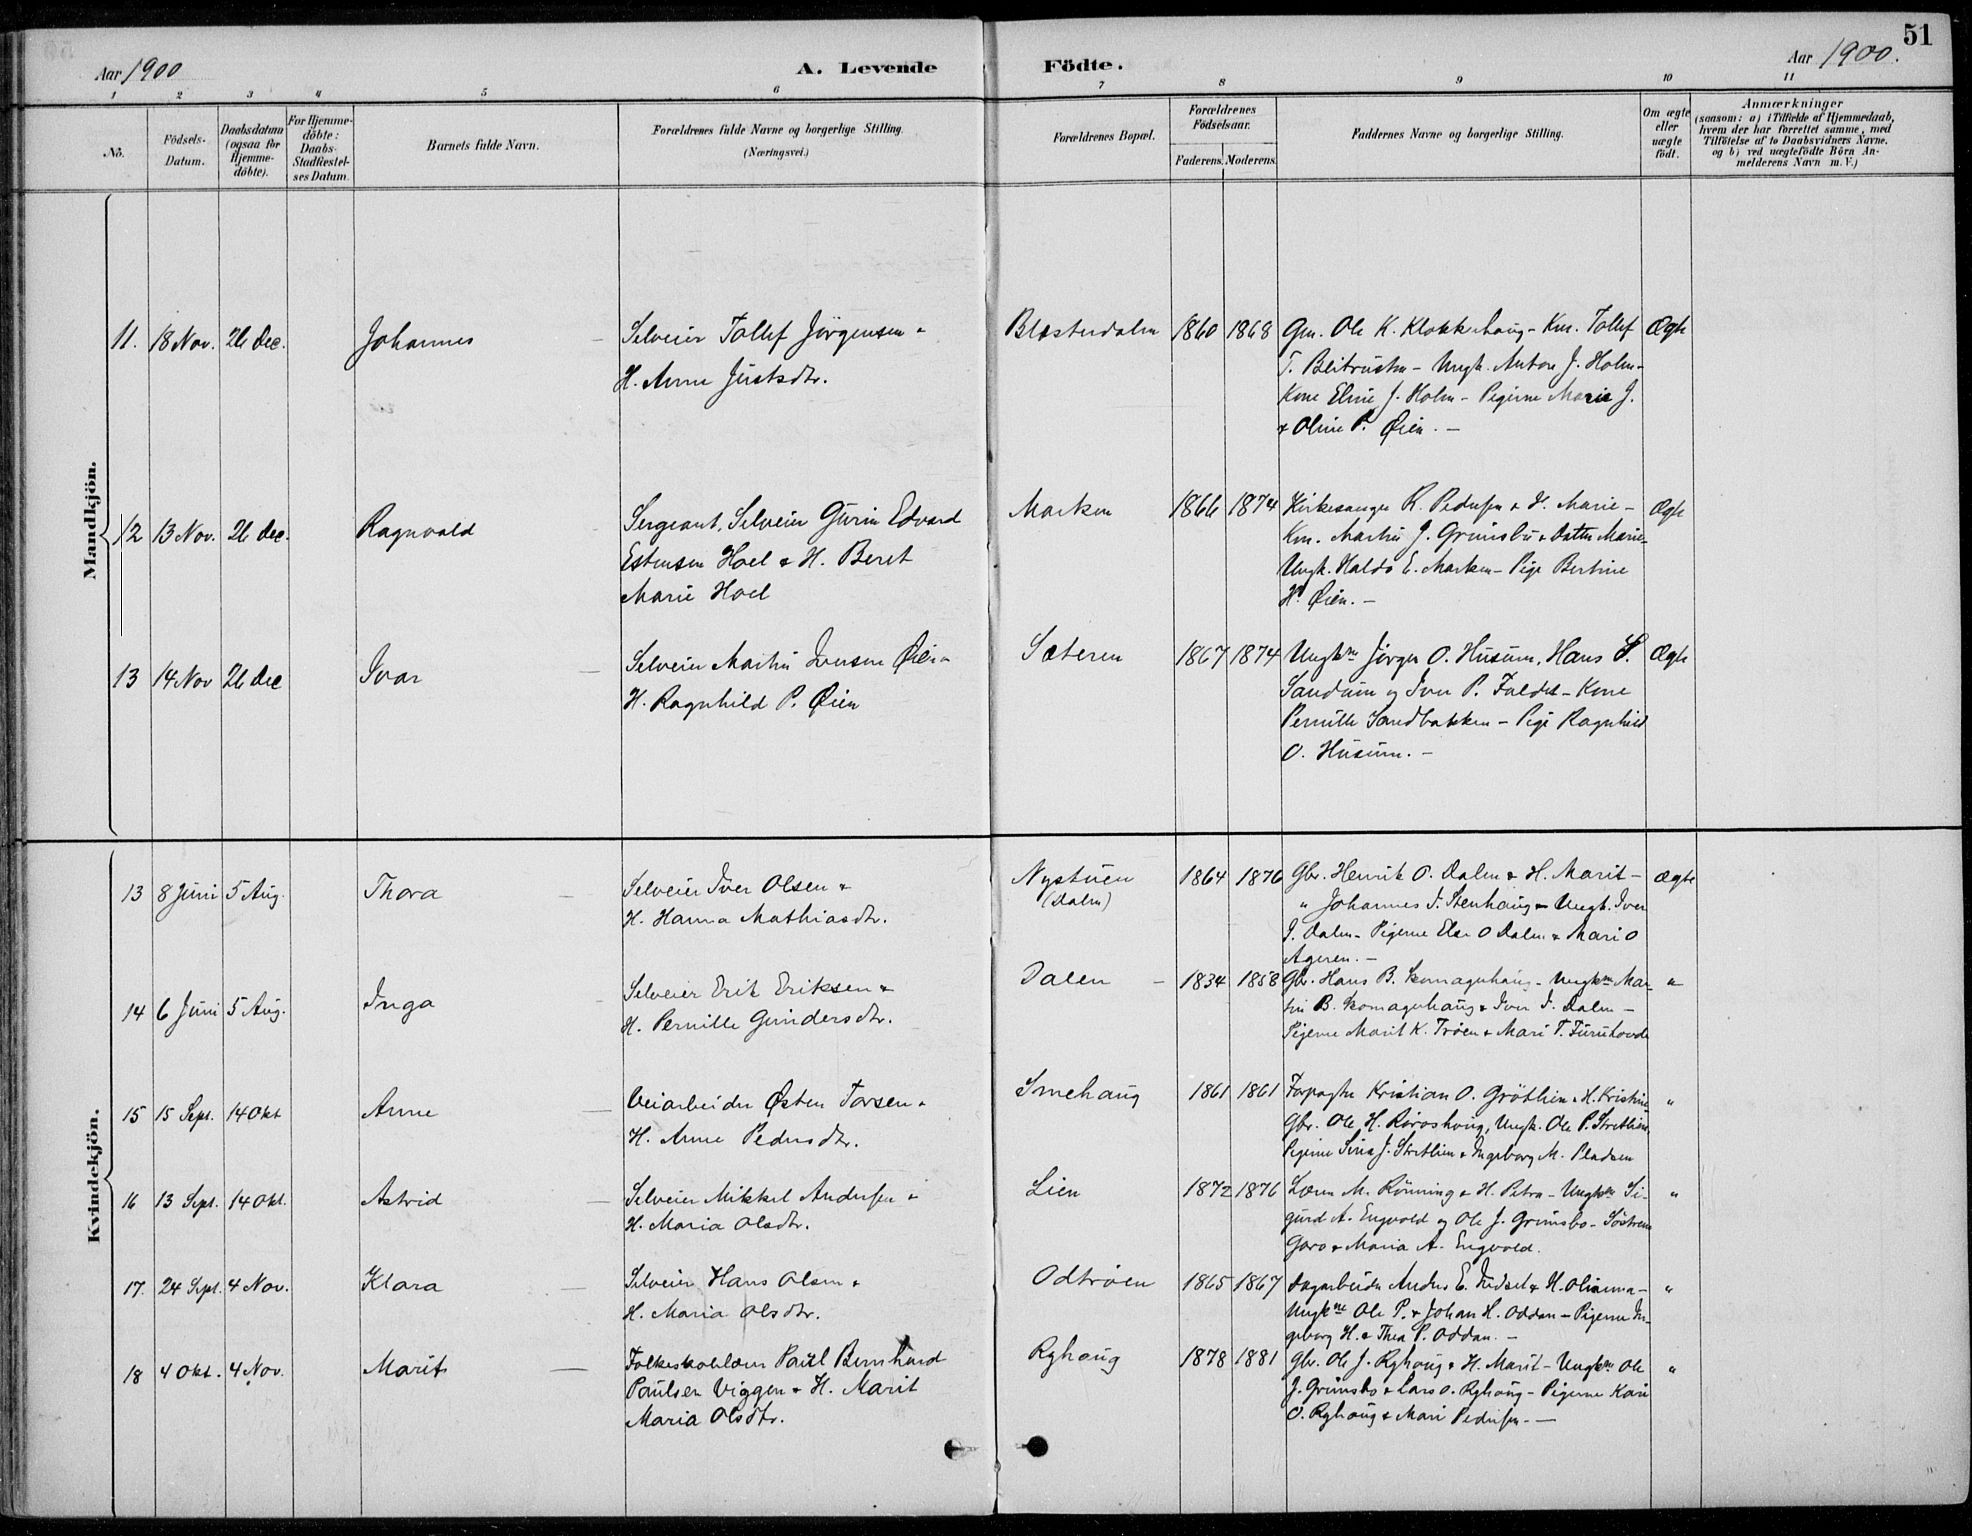 51
Aar 1900
A. Levende
Födte.
Aar 1900.
1 2 3 4 5 6 7 8 9 10 11
No.
Födsels-
Datum.
Daabsdatum
(ogsaa for
Hjemme-
döbte).
For Hjemme-
döbte:
Daabs-
Stadfæstel-
ses Datum.
Barnets fulde Navn.
Forældrenes fulde Navne og borgerlige Stilling.
(Næringsvei.)
Forældrenes Bopæl.
Forældrenes
Födselsaar.
Faderens. Moderens.
Faddernes Navne og borgerlige Stilling.
Om ægte
eller
uægte
födt.
Anmærkninger
(saasom: a) i Tilfælde af Hjemmedaab,
hvem der har forrettet samme, med
Tilföielse af to Daabsvidners Navne.
og b) ved uægtefödte Börn An-
melderens Navn m. V.)
Mandkjön.
11. 18 Nov. 26 Dec. Johannes
Selveier Tollef Jörgensen &
H. Anne Justsdtr.
Blæsterdalen 1860 1868
Gm. Ole K. Klokkerhaug - Km. Tollef
T. Beitrusten - Ungk. Anton J. Holm -
Kone Eline J. Holm - Pigerne Marie J.
& Oline P. Øien. -
Ægte
12 13 Nov. 26 Dec. Ragnvald
Sergeant, Selveier Guren Edvard
Estensen Hoel & H. Beret
Marie Hoel
Marken 1866 1874
Kirkesanger R. Pedersen & H. Marie -
Km. Martin J. Grimsbu & Datter Marie -
Ungk. Haldo E. Marken - Pige Bertine
H. Øien. -
Ægte
13 14 Nov 26 Dec Ivar
Selveier Martin Iversen Øien &
H. Ragnhild P. Øien
Sæteren 1867 1874
Ungkne Jörgen O. Husum, Hans S.
Sandum og Iver P. Faldet - Kone
Pernille Sandbakken - Pige Ragnhild
O. Husum. -
Ægte
Kvindekjön.
13 8 Juni 5 Aug. Thora
Selveier Iver Olsen &
H. Hanna Mathiasdtr.
Nystuen
(Dalen)
1864 1876
Gbr. Henrik O. Dalen & H. Marit -
" Johannes J. Stenhaug - Ungk. Iver
J. Dalen - Pigerne Else O Dalen & Mari O
Ageren. -
Ægte
14 6 Juni 5 Aug. Inga
Selveier Erik Eriksen &
H. Pernille Gundersdtr.
Dalen - 1834 1858
Gbr. Hans B. Skomagerhaug - Ungkne Mar-
tin B. Skomagerhaug & Iver J. Dalen -
Pigerne Marit K. Tröen & Mari T. Furuhovde
"
15 15 Sept. 14 Okt Anne
Veiarbeider Østen Torsen &
H. Anne Pedersdtr.
Smehaug 1861 1861
Forpagter Kristian O. Grötlien & H. Kristine
Gbr. Ole H. Röroshaug, Ungk. Ole P. Stretlien,
Pigerne Siria J. Stretlien & Ingeborg M. Pladsen
"
16 13 Sept. 14 Okt. Astrid
Selveier Mikkel Andersen &
H. Maria Olsdtr.
Lien 1872 1876
Lærer M. Rönning & H. Petra - Ungkne Si-
gurd A. Engvold og Ole J. Grimsbo - Söstrene
Goro & Maria A. Engvold.
"
17. 24 Sept. 4 Nov. Klara
Selveier Hans Olsen &
H. Maria Olsdtr.
Odtröen 1865 1867
Dagarbeider Anders E. Indset & H. Olianna -
Ungkne Ole P. & Johan H. Oddan - Pigerne In-
geborg H. & Thea P. Oddan. -
"
18 4 Okt. 4 Nov. Marit
Folkeskolelærer Paul Bernhard
Paulsen Viggen & H. Marit
Maria Olsdtr.
Ryhaug 1878 1881
Gbr. Ole J. Ryhaug & H. Marit - Ungkne Ole
J. Grimsbo & Lars O. Ryhaug - Pigerne Kari
O. Ryhaug & Mari Pedersen. -
"